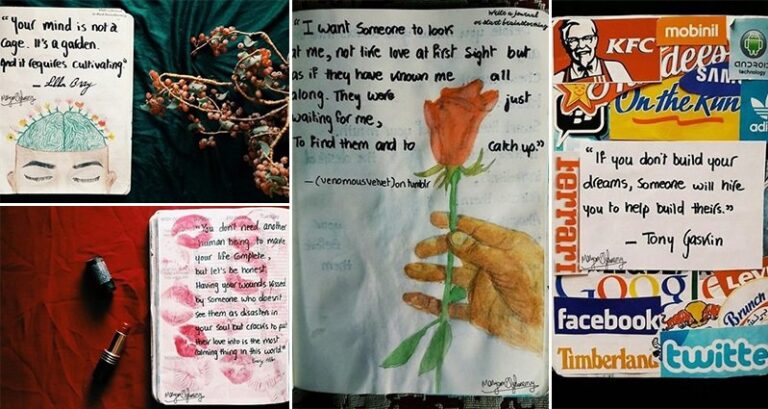 "Your mind is not a
cage. It's a garden.
And it requires cultivating"
— Libba Bray
"You don't need another
human being to make
your life complete,
but let's be honest.
Having your wounds kissed
by someone who doesn't
see them as disasters in
your soul but cracks to put
their love into is the most
calming thing in this world"
Write a journal
or start brainstorming
"I want someone to look
at me, not like love at first sight but
as if they have known me all
along. They were just
waiting for me,
To find them and to catch up."
— (venomousvelvet) on tumblr
KFC
mobinil
ANDROID
technology
SAM
On the Run
adi
Ferrari
"If you don't build your
dreams, someone will hire
you to help build theirs."
— Tony Gaskin
Google
facebook
Red Bull
Brunch
Timberland
twitte